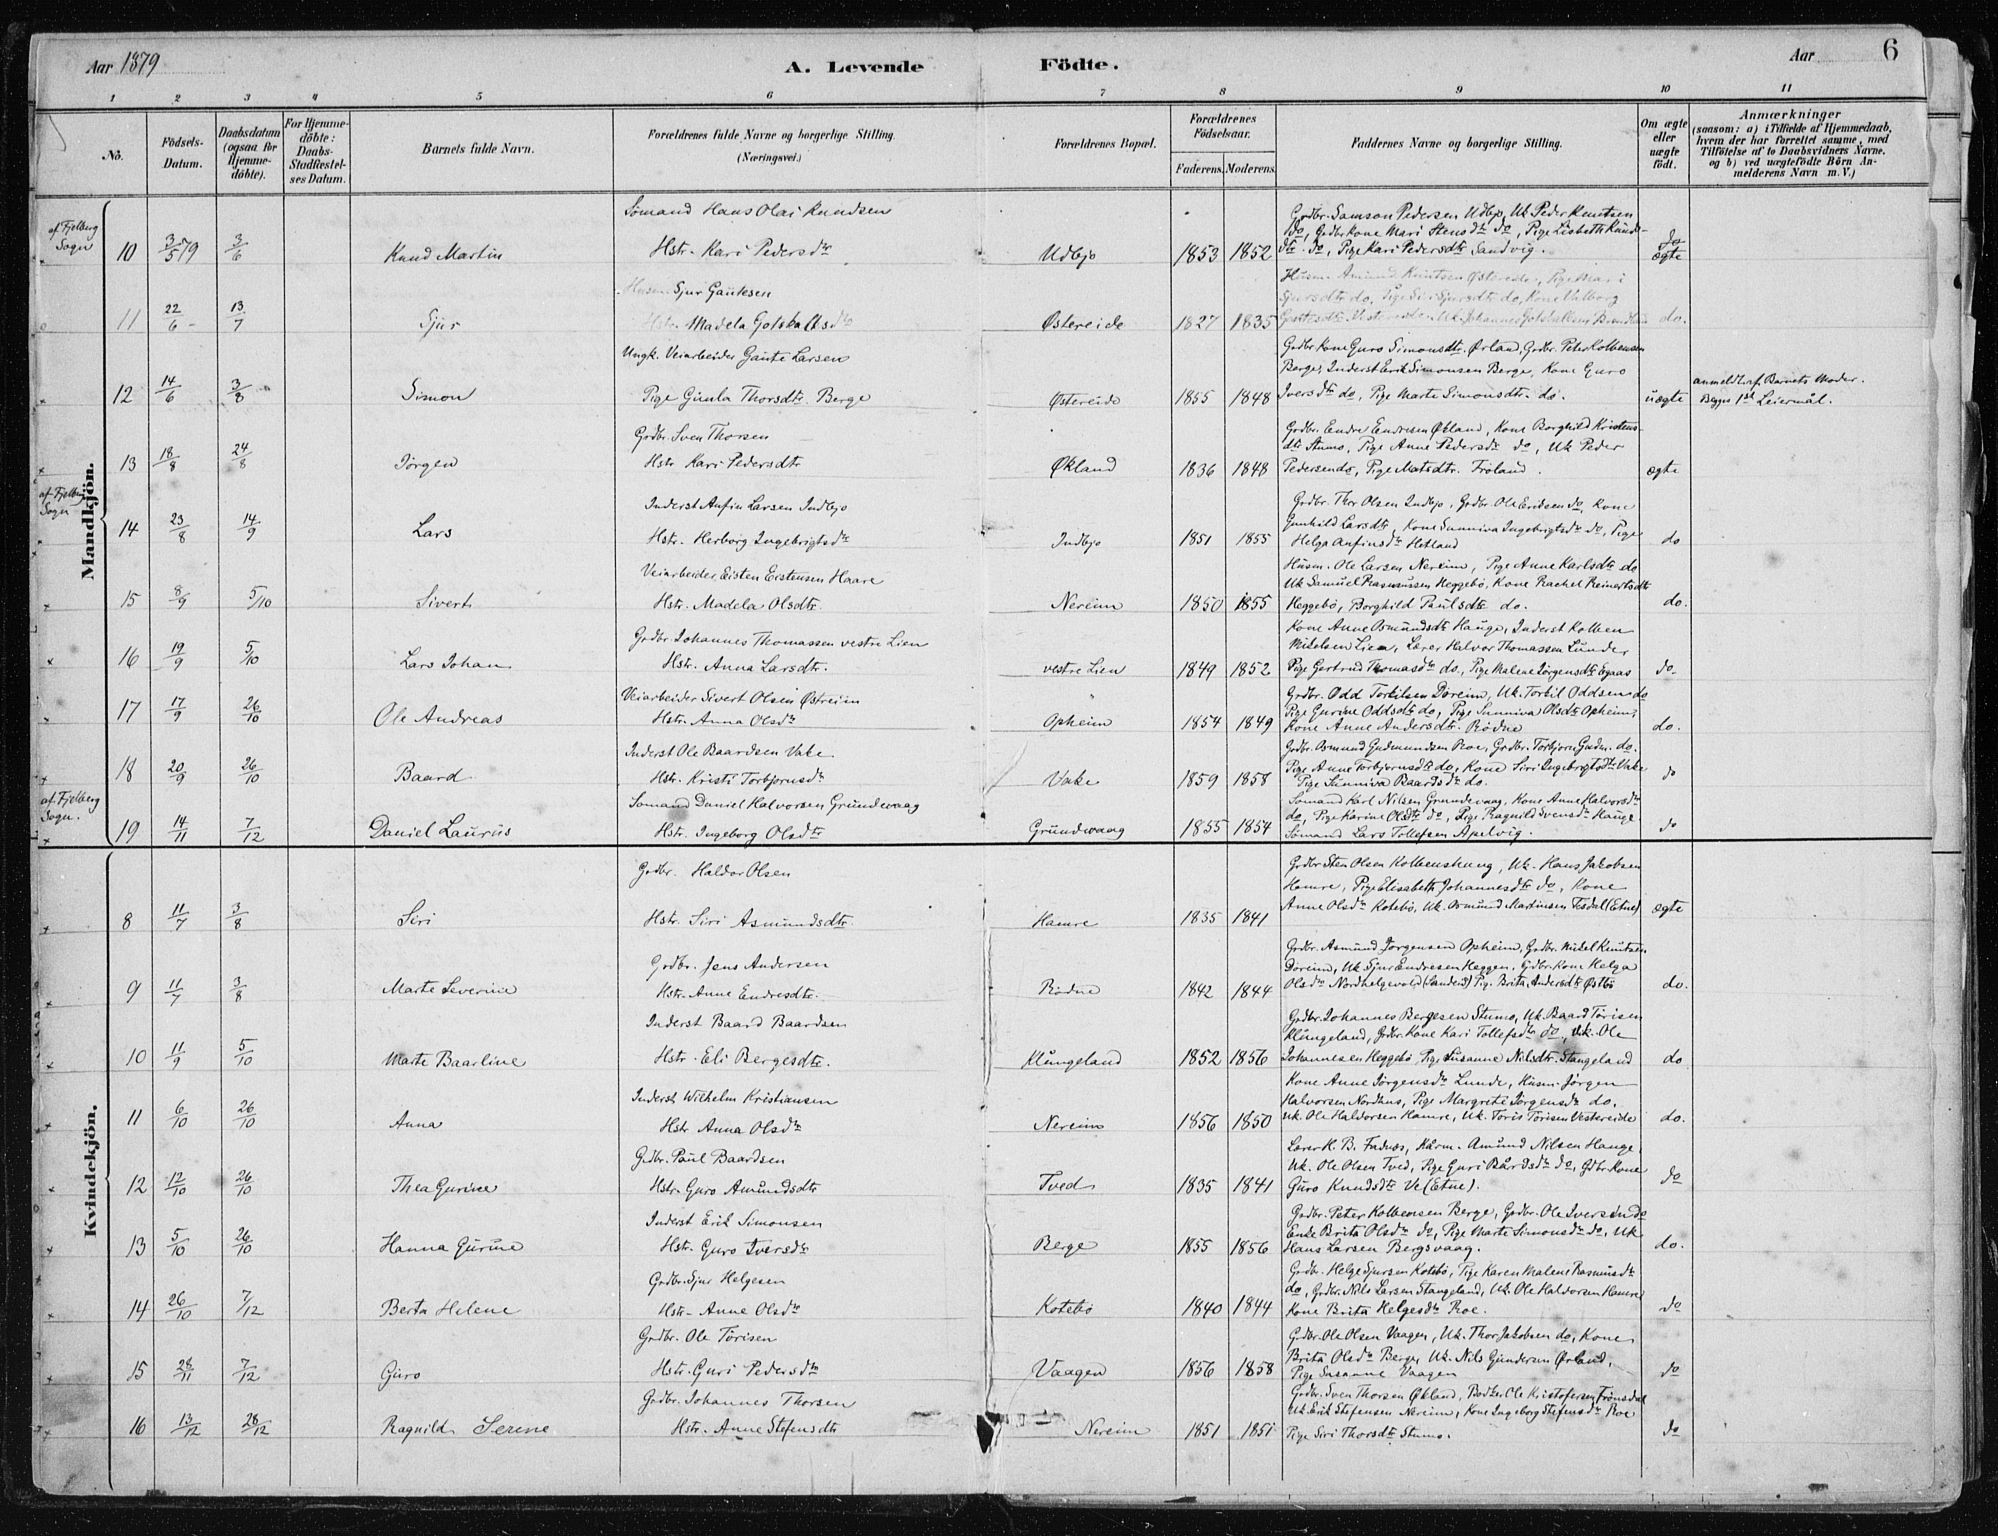 Aar 1879
A. Levende
Födte.
Aar
6
1 2 3 4 5 6 7 8 9 10 11
No.
Födsels-Datum.
Daabsdatum (ogsaa for Hjemme-döbte).
For Hjemme-döbte: Daabs-Stadfæstel-ses Datum.
Barnets fulde Navn.
Forældrenes fulde Navne og borgerlige Stilling. (Næringsvei.)
Forældrenes Bopæl.
Forældrenes Födselsaar.
Faderens. Moderens.
Faddernes Navne og borgerlige Stilling.
Om ægte eller uægte födt.
Anmærkninger
(saasom: a) i Tilfælde af Hjemmedaab, hvem der har forrettet samme, med Tilföielse af to Daabsvidners Navne, og b) ved uægtefödte Börn Anmelderens Navn m. V.)
Mandkjön.
af Fjelberg Sogn
10 3/5 79 3/6 Knud Martin
Sømand Hans Olai Knudsen
Hstr. Kari Pedersdtr
Udbjo 1853 1852
Grdbr. Samson Pedersen Udbjo, Uk Peder Knutsen
do, Grdbr Kone Mari Stensdtr do, Pige Lisbeth Knuds-
dtr. do, Pige Kari Pedersdtr Sandvig.
do ægte
11 22/6 - 13/7 Sjur
Husm. Sjur Gautesen
Hstr. Madela Gotskalksdtr
Østereide 1827 1835
Husm. Amund Knutsen Østereide, Pige Mari
Sjursdtr do, Pige Siri Sjursdtr do, Kone Valborg
do.
12 14/6 3/8 Simon
Ungk. Veiarbeider Gaute Larsen
Pige Gunla Thorsdtr. Berge
Østereide 1855 1848
Grdbr Kone Guro Simonsdtr. Ørland, Grdbr. Peter Kolbensen
Berge, Inderst Erik Simonsen Berge, Kone Guro
Iversdtr do, Pige Marte Simonsdtr. do.
uægte
anmeldt af Barnets Moder.
Begges 1ste Leiermål.
13 18/8 24/8 Jörgen
Grdbr. Sven Thorsen
Hstr Kari Pedersdtr
Økland 1836 1848
Grdbr. Endre Endresen Økland, Kone Borghild Kristens-
dtr Stumo, Pige Anne Pedersdtr do, Uk Peder
Pedersen do, Pige Matsdtr. Fröland.
ægte
af Fjelberg Sogn
14 23/8 14/9 Lars
Inderst Anfin Larsen Indbjo
Hstr. Herborg Ingebrigtsdtr
Indbjo 1851 1855
Grdbr. Thor Olsen Indbjo, Grdbr Ole Eriksen do, Kone
Gunhild Larsdtr, Kone Sunniva Ingebrigtsdtr do, Pige
Helga Anfinsdtr Hetland
do
15 8/9 5/10 Sivert
Veiarbeider Eisten Eistensen Haare
Hstr. Madela Olsdtr.
Nereim 1850 1855
Husm. Ole Larsen Nereim, Pige Anne Karlsdtr do
Uk Samuel Rasmussen Heggebö, Kone Rachel Reinertsdtr
Heggebö, Borghild Paulsdtr do.
do.
16 19/9 5/10 Lars Johan
Grdbr. Johannes Thomassen vestre Lien
Hstr. Anna Larsdtr.
vestre Lien 1849 1852
Kone Anne Osmundsdtr Hauge, Inderst Kolben
Mikelsen Lien, Lærer Halvor Thomassen Lunder
Pige Gertrud Thomasdtr do, Pige Malene Jörgensdtr Egaas
do
17 17/9 26/10 Ole Andreas
Veiarbeider Sivert Olsen Østreim
Hstr. Anna Olsdtr
Opheim 1854 1849
Grdbr. Odd Torkilsen Döreim, Uk. Torkil Oddsen do
Pige Gurine Oddsdtr do, Pige Sunniva Olsdtr Opheim,
Kone Anne Andersdtr. Rödne
do.
18 20/9 26/10 Baard
Inderst Ole Baardsen Vake
Hstr. Kristi Torbjornsdtr
Vake 1859 1858
Grdbr. Osmund Gudmundsen Roe, Grdbr. Torbjorn Gudm. do.
Pige Anne Torbjornsdtr do, Kone Siri Ingebrigtsdtr Vake
Pige Sunniva Baardsdtr do.
do
af Fjelberg Sogn.
19 14/11 7/12 Daniel Laurus
Sømand Daniel Halvorsen Grundevaag
Hstr. Ingeborg Olsdtr
Grundevaag 1855 1854
Sømand Karl Nilsen Grundevaag, Kone Anne Halvorsdtr
do, Pige Karine Olsdtr do, Pige Ragnild Svensdtr Hauge
Sømand Lars Tollefsen Apelvig.
do
Kvindekjön.
8 11/7 3/8 Siri
Grdbr. Haldor Olsen
Hstr. Siri Asmundsdtr.
Hamre 1835 1841
Grdbr. Sten Olsen Kolbenshaug, Uk. Hans Jakobsen
Hamre, Pige Elisabeth Johannesdtr do, Kone
Anne Olsdtr Kotebö, Uk. Osmund Martinsen Tesdal (Etne)
ægte
9 11/7 3/8 Marte Severine
Grdbr. Jens Andersen
Hstr. Anne Endresdtr.
Rödne 1842 1844
Grdbr. Asmund Jorgensen Opheim, Grdbr. Mikel Knutsen
Döreim, Uk Sjur Endresen Heggen, Grdbr. Kone Helga
Olsdtr Nordhelgevold (Sandeid) Pig. Brita Andersdtr Østbö
do.
10 11/9 5/10 Marte Baarline
Inderst Baard Baardsen
Hstr. Eli Bergesdtr.
Klungeland 1852 1856
Grdbr. Johannes Bergesen Stumo, Uk. Baard Törisen
Klungeland, Grdbr. Kone Kari Tollefsdtr do, Uk. Ole
Johannesen Heggebö, Pige Susanne Nilsdtr. Stangeland
do
11 6/10 26/10 Anna
Inderst Wilhelm Kristiansen
Hstr Anna Olsdtr
Nereim 1856 1850
Kone Anne Jörgensdtr Lunde, Husm. Jörgen
Halvorsen Nordhus, Pige Margrete Jörgensdtr do.
Uk. Ole Haldorsen Hamre, Uk. Töris Törisen Vestereide
do.
12 12/10 26/10 Thea Gurine
Grdbr. Paul Baardsen
Hstr. Guro Amundsdtr
Tved 1835 1841
Lærer K. B. Fadnæs, Husm. Amund Nilsen Hauge
Uk. Ole Olsen Tved, Pige Guri Bårdsdtr do, Gdbr Kone
Guro Knudsdtr Ve (Etne).
do
13 5/10 26/10 Hanna Gurine
Inderst Erik Simonsen
Hstr. Guro Iversdtr
Berge 1855 1856
Grdbr. Peter Kolbensen Berge, Grdbr. Ole Iversen do
Enke Brita Olsdtr do, Pige Marte Simonsdtr do, Uk
Hans Larsen Bergsvaag.
do.
14 26/10 7/12 Berta Helene
Grdbr. Sjur Helgesen
Hstr. Anne Olsdtr
Kotebö 1840 1844
Grdbr. Helge Sjursen Kotebö, Pige Karen Malene Rasmusdtr
do, Grdbr. Nils Larsen Stangeland, Uk. Ole Haldorsen Hamre
Kone Brita Helgesdtr Roe.
do
15 28/11 7/12 Guro
Grdbr. Ole Törisen
Hstr. Guri Pedersdtr
Vaagen 1856 1858
Grdbr. Ole Olsen Vaagen, Uk. Thor Jakobsen do, Kone
Brita Olsdtr Berge, Uk. Nils Gundersen Ørland,
Pige Susanne Vaagen
do
16 13/12 28/12 Ragnild Serine
Grdbr. Johannes Thorsen
Hstr. Anne Stefensdtr
Nereim 1851 1851
Grdbr. Sven Thorsen Økland, Bødker Ole Kristofersen Frønsdal
Uk. Erik Stefensen Nereim, Kone Ingeborg Stefensdtr Roe
Pige Siri Thorsdtr Stumo.
do